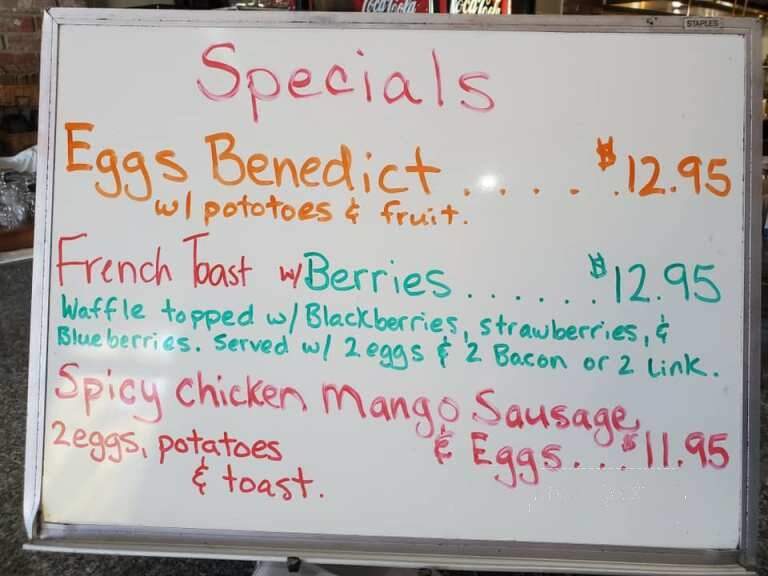 Coca-Cola Coca-Cola
STAPLES
Specials
Eggs Benedict . . . . . $12.95
w/ pototoes & fruit.
French Toast w/ Berries . . . . . . $12.95
Waffle topped w/ Blackberries, strawberries, &
Blueberries. Served w/ 2 eggs & 2 Bacon or 2 Link.
Spicy Chicken Mango Sausage
& Eggs . . . $11.95
2 eggs, potatoes
& toast.